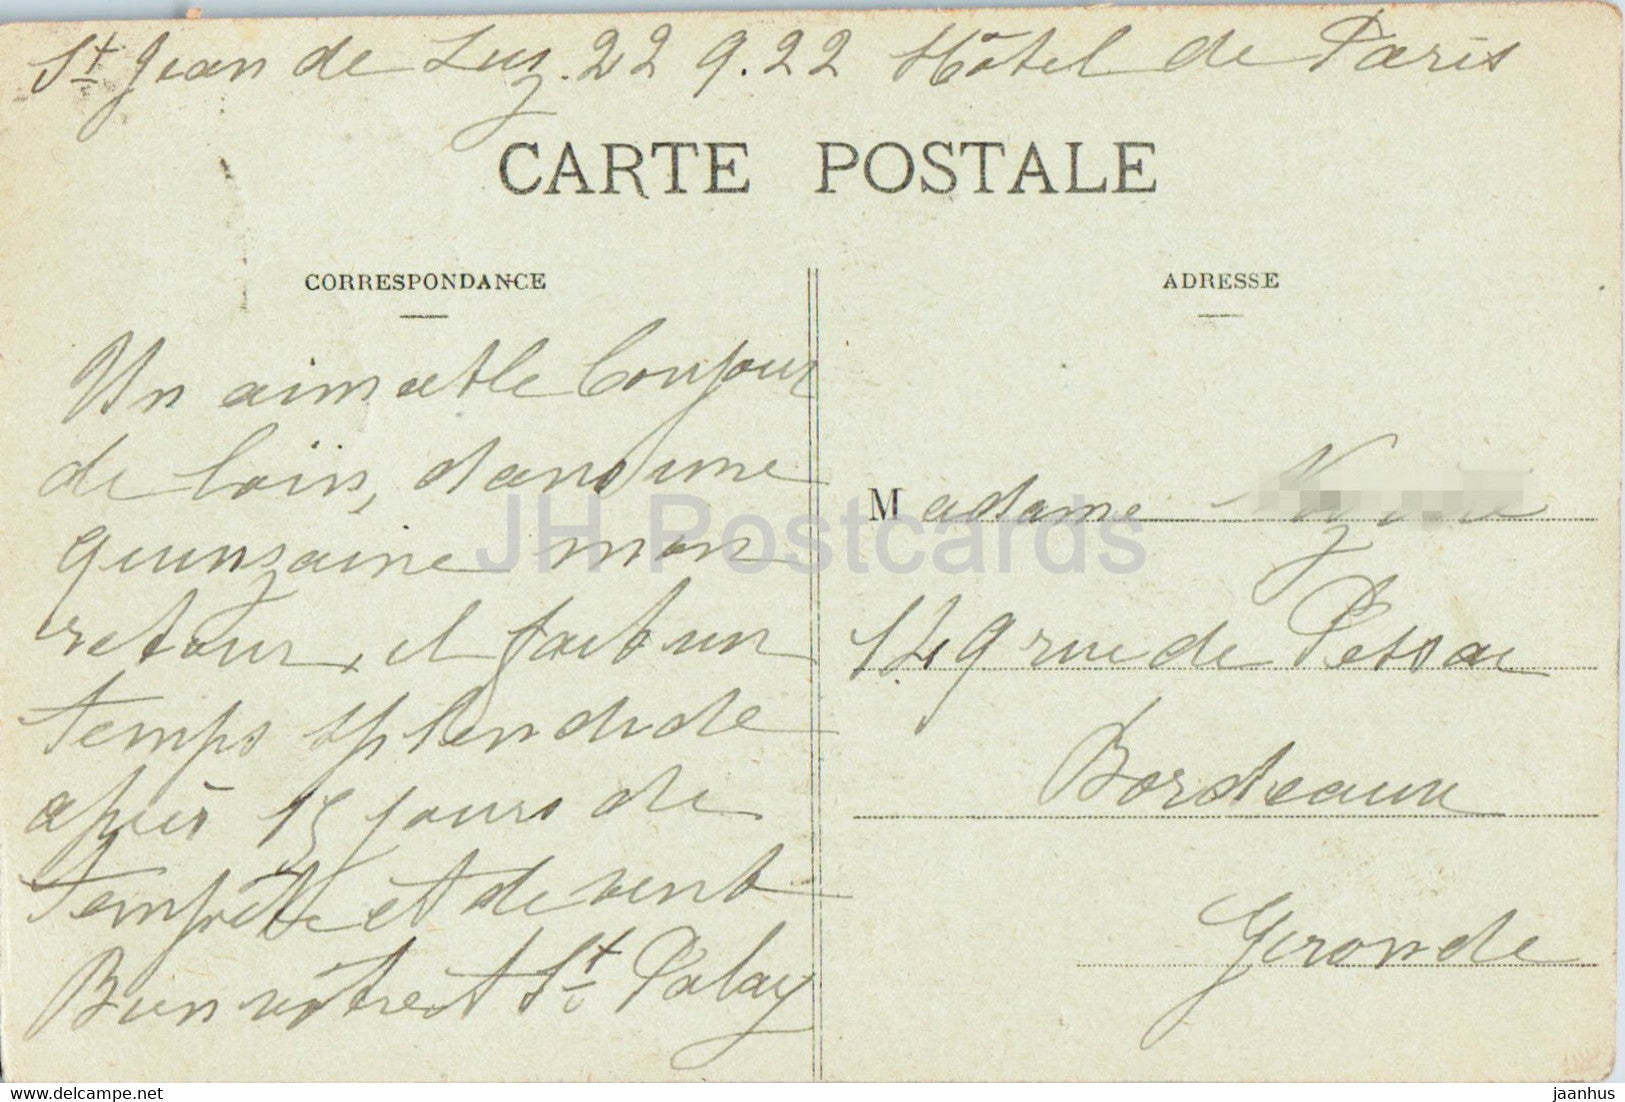 St Jean de Luz. 22 9. 22 Hôtel de Paris
CARTE POSTALE
CORRESPONDANCE
Un aimable bonjour
de loin, dans une
quinzaine mon
retour, il fait un
temps splendide
après 15 jours de
tempête et de vent
Bien vôtre St Palay
ADRESSE
Madame
149 rue de Pessac
Bordeaux
Gironde
JH Postcards
www.delcampe.net
jaanhus